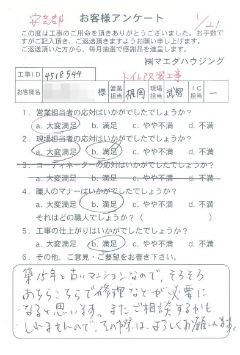 お客様アンケート
この度は工事のご用命を頂きありがとうございました。お手数で
すがご記入頂き、ご返送頂きますようお願い申し上げます。
ご返送頂いた方から、毎月抽選で感謝品を進呈します。
㈱マエダハウジング
工事ID 4518544 トイレ改装工事
お客様名 様 営業担当 工事担当 IC担当 ー
1. 営業担当者の応対はいかがでしたでしょうか?
a. 大変満足 b. 満足 c. やや不満 d. 不満
2. 現場担当者の応対はいかがでしたでしょうか?
a. 大変満足 b. 満足 c. やや不満 d. 不満
3. コーディネーターの応対はいかがでしたでしょうか?
a. 大変満足 b. 満足 c. やや不満 d. 不満
4. 職人のマナーはいかがでしたでしょうか?
a. 大変満足 b. 満足 c. やや不満 d. 不満
それはどの職人でしょうか? ( )
5. 工事の仕上がりはいかがでしたでしょうか?
a. 大変満足 b. 満足 c. やや不満 d. 不満
6. その他、ご意見・ご要望をお聞かせ下さい。
築15年と古いマンションなので、そろそろ
あちらこちらで修理などが必要に
なると思います。またご相談するかも
しれませんので、その際は、よろしくお願いします。